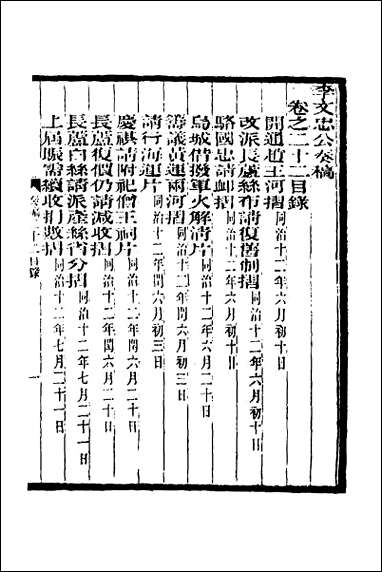 李文忠公奏稿
卷之二十二目錄
開通趙王河摺同治十二年六月初十日
改派長蘆絲布請復舊制摺同治十二年六月初十日
駱國忠請卹摺同治十二年六月初十日
烏城借撥軍火解清片同治十二年六月二十日
籌議黃運兩河摺同治十二年閏六月初三日
請行海運片同治十二年閏六月初三日
慶祺請附祀僧王祠片同治十二年閏六月二十日
長蘆復價仍請減收摺同治十二年閏六月二十日
長蘆白絲請派產絲省分摺同治十二年七月二十一日
上屆賑需續收捐數摺同治十二年七月二十一日